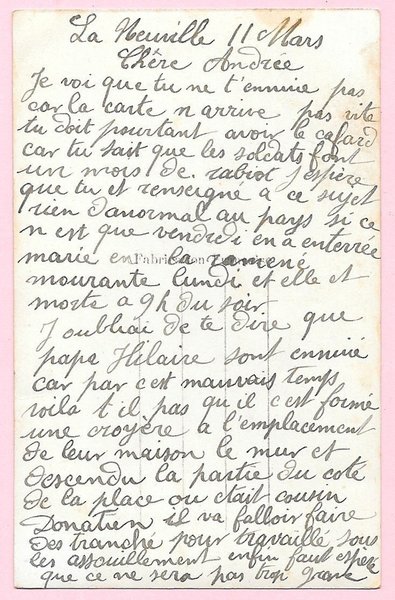 La Neuville 11 Mars
Chère Andrée
Je voi que tu ne t'ennuie pas
car la carte n arrive pas vite
tu doit pourtant avoir le cafard
car tu sait que les soldats font
un mois de rabiot J espère
que tu et renseigné a ce sujet
rien danormal au pays si ce
n est que vendredi en a enterrée
marie en la ramené
Fabrication
mourante lundi et elle et
morte a 9h du soir
J oubliai de te dire que
papa Hilaire sont ennuié
car par c est mauvais temps
voila t il pas qu il c est formé
une croyère a l'emplacement
de leur maison le mur et
descendu la partie du coté
de la place ou etait cousin
Donatien il va falloir faire
des tranché pour travaillé sous
les assouillement enfin faut esperé
que ce ne sera pas trop grave